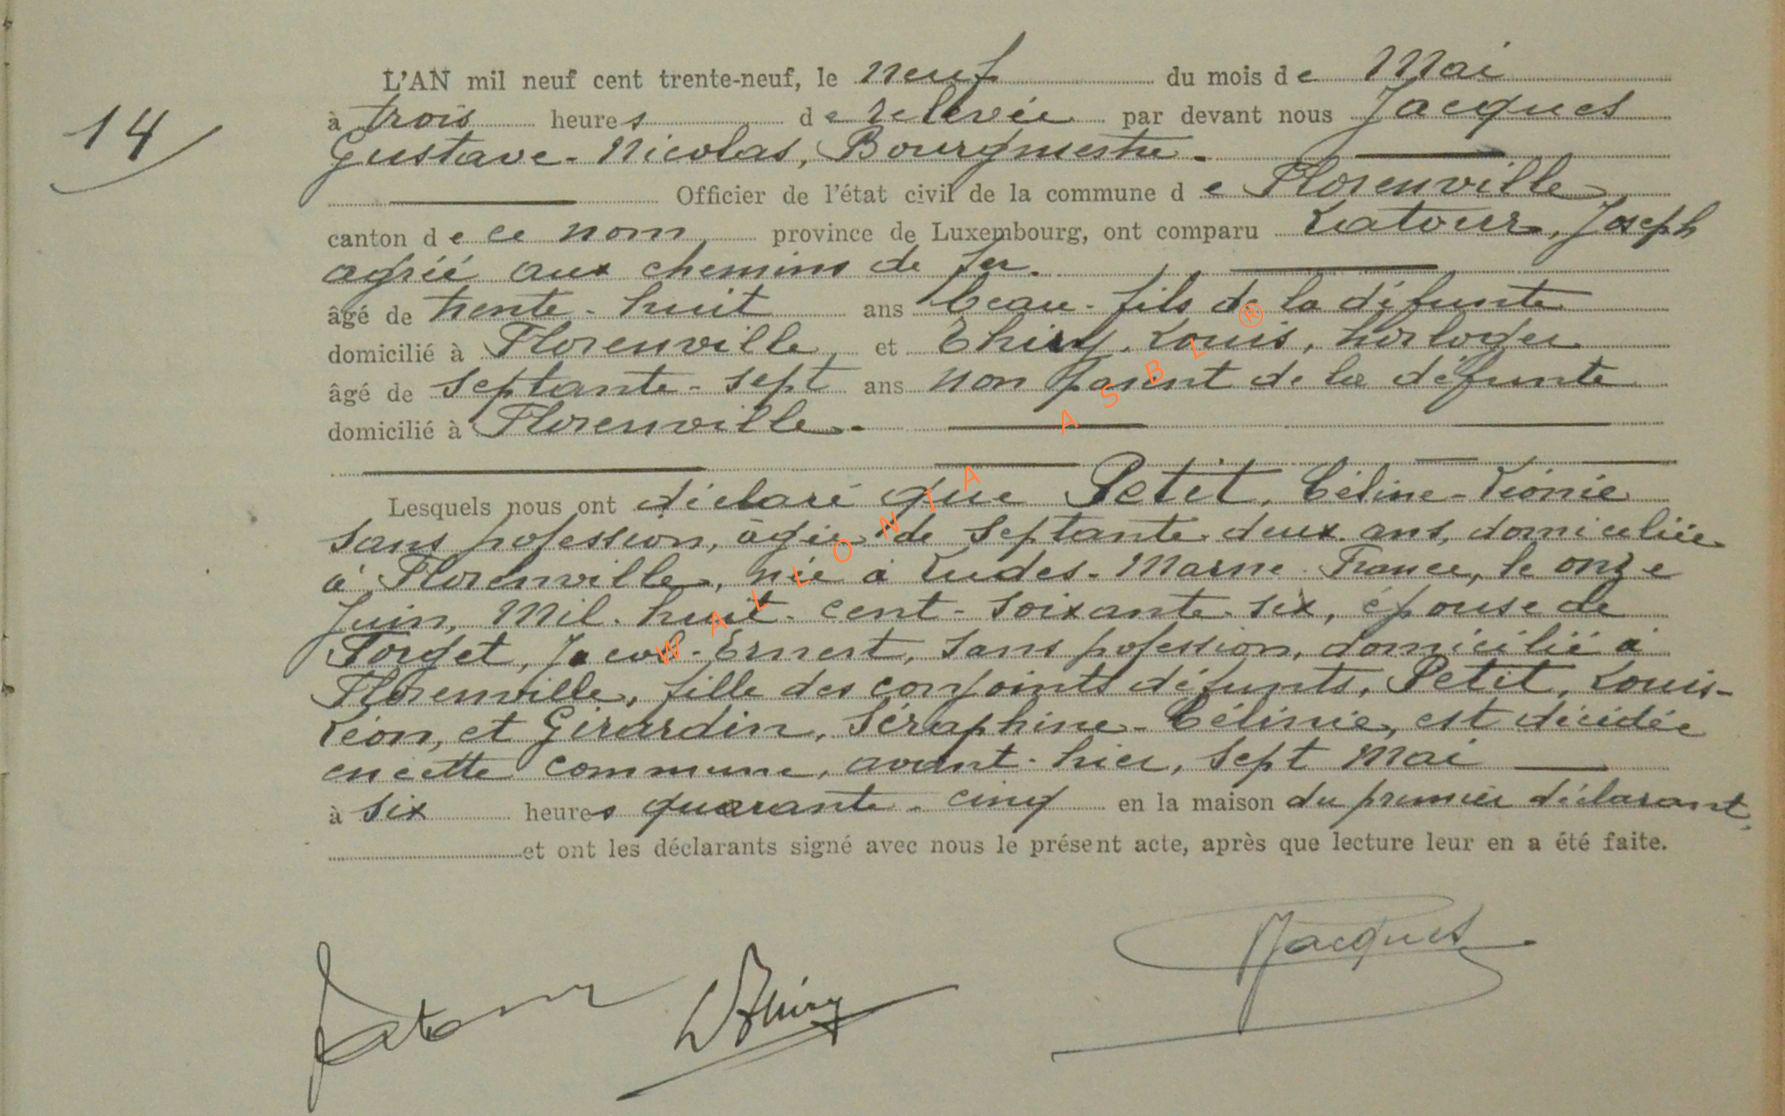 14
L'AN mil neuf cent trente-neuf, le neuf du mois de Mai
à trois heures de relevée par devant nous Jacques
Gustave-Nicolas, Bourgmestre.
Officier de l'état civil de la commune de Florenville
canton de ce nom, province de Luxembourg, ont comparu Latour, Joseph
agréé aux chemins de fer.
âgé de trente-huit ans beau-fils de la défunte
domicilié à Florenville, et Thiry, Louis, horloger
âgé de septante-sept ans non parent de la défunte
domicilié à Florenville.
Lesquels nous ont déclaré que Petit, Céline-Léonie
sans profession, âgée de septante-deux ans, domiciliée
à Florenville, née à Ludes-Marne-France, le onze
Juin, mil-huit-cent-soixante-six, épouse de
Forget, Jacob-Ernest, sans profession, domicilié à
Florenville, fille des conjoints défunts, Petit, Louis-
Léon, et Girardin, Séraphine-Célinie, est décédée
en cette commune, avant-hier, sept Mai
à six heures quarante-cinq en la maison du premier déclarant,
et ont les déclarants signé avec nous le présent acte, après que lecture leur en a été faite.
Latour LThiry Jacques
WALLONIA ASBL ®